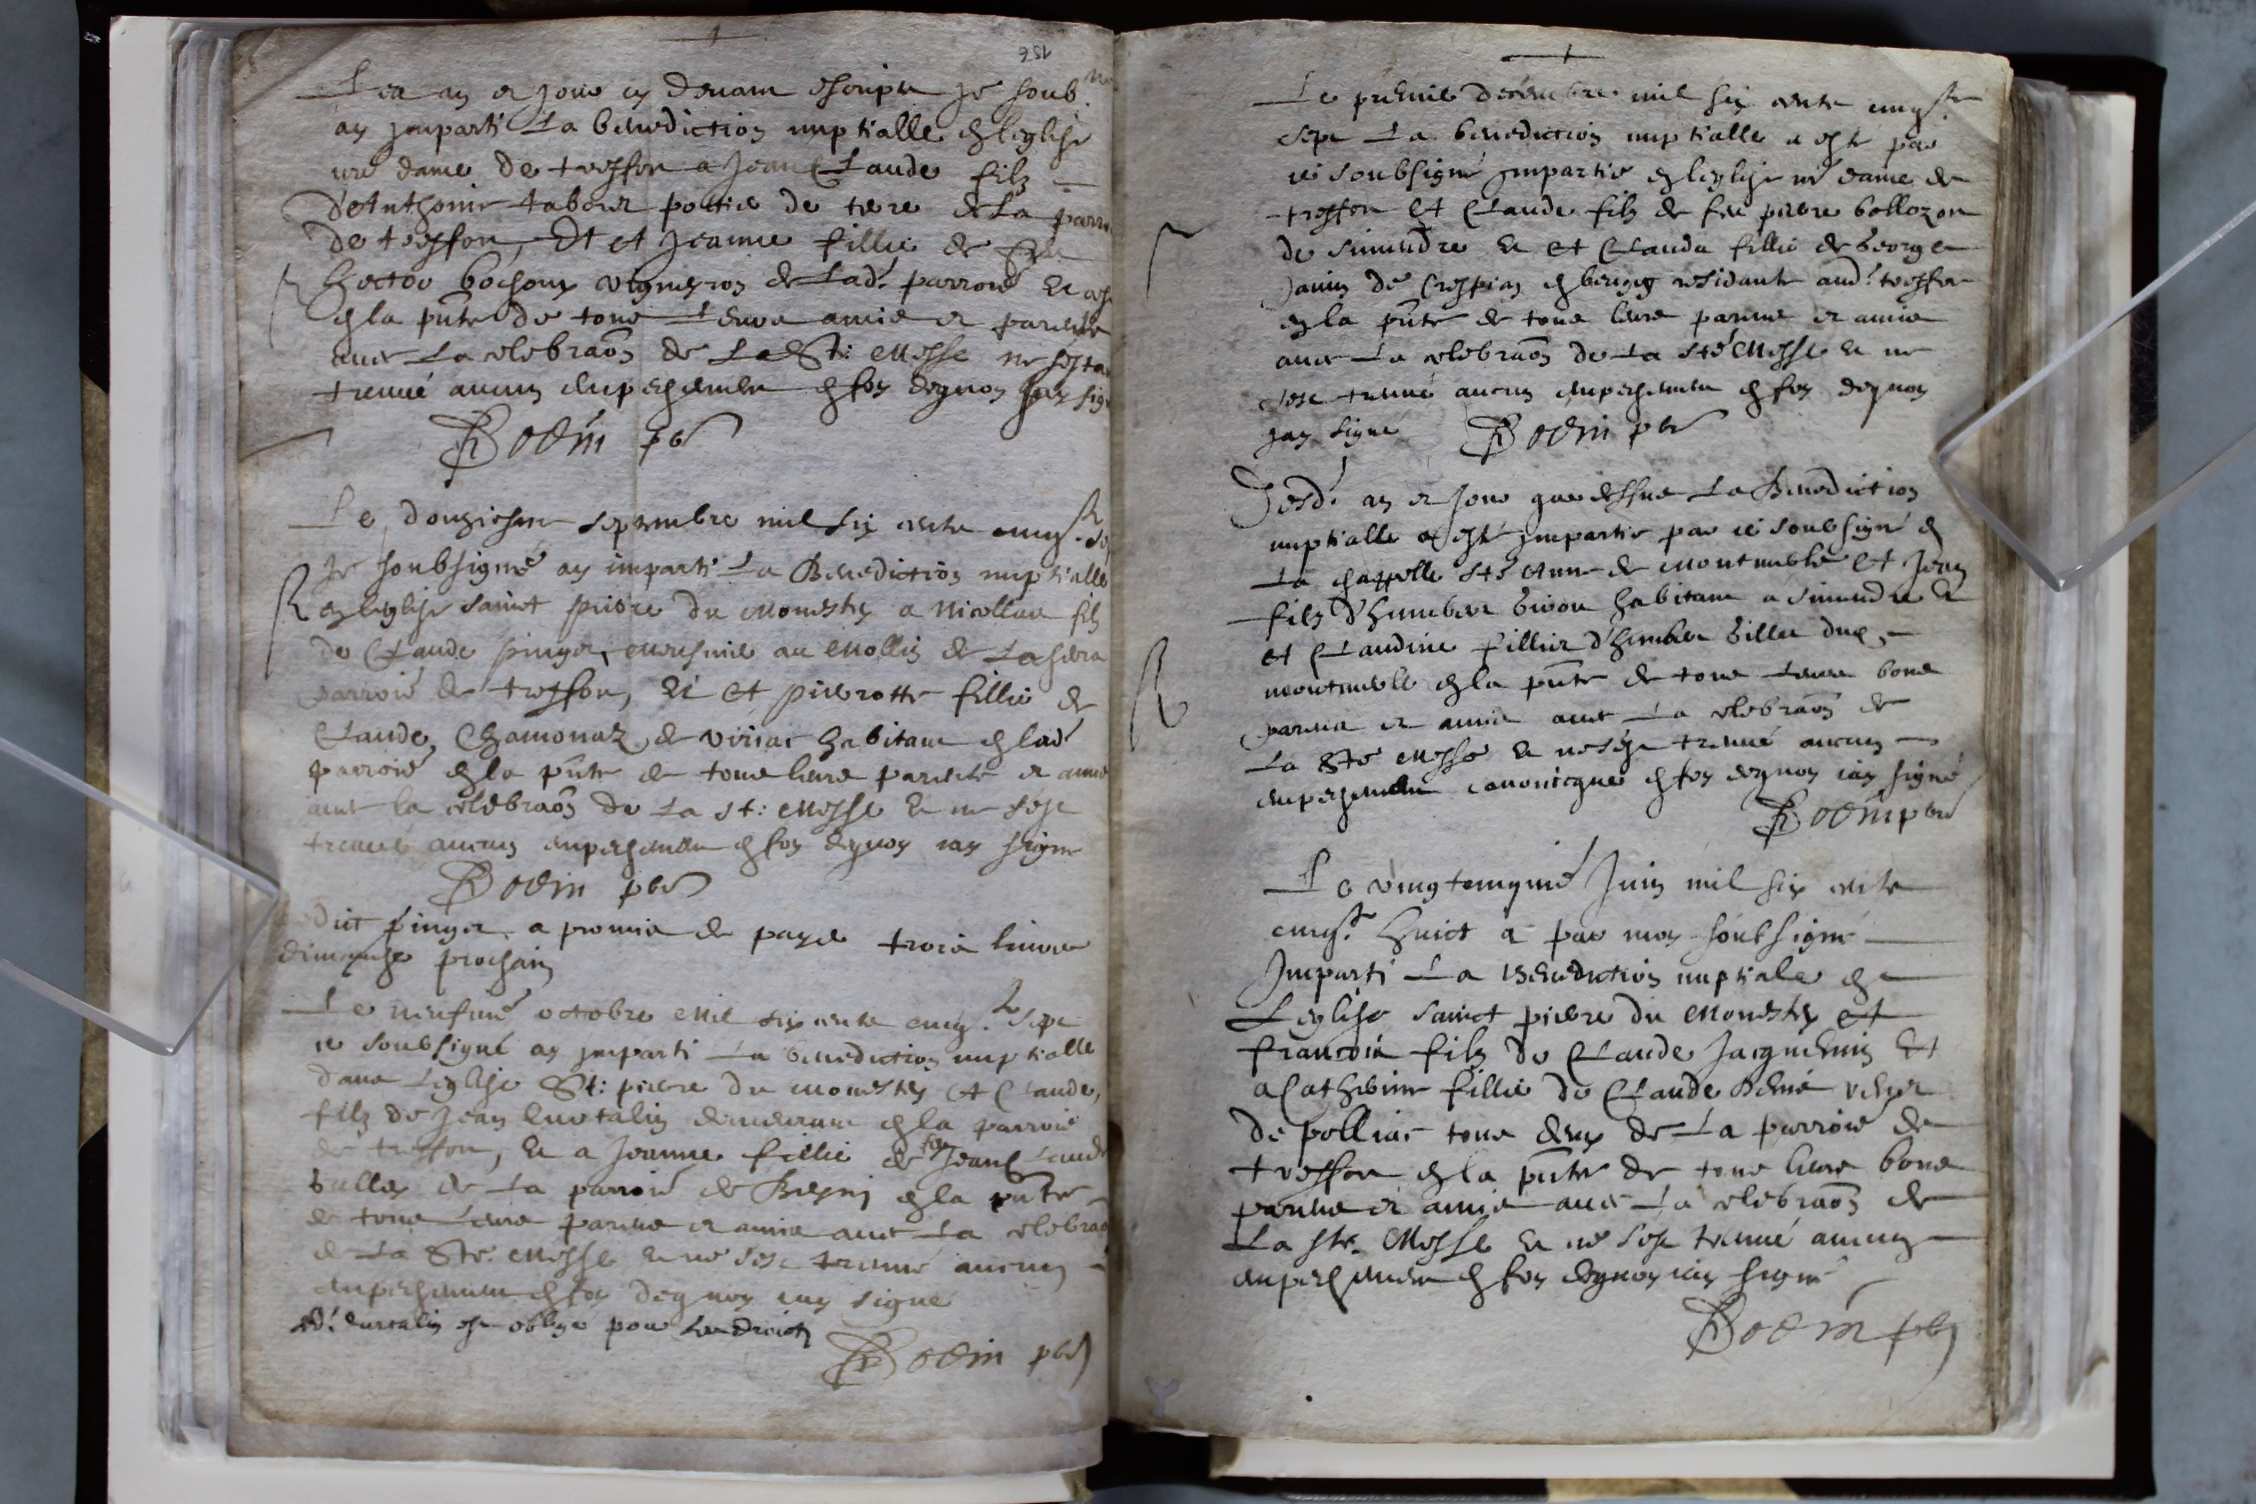 156
Les an et jour cy devant escriptz Je soub.né
ay jmparti La benediction nuptialle en leglise
nre dame de treffort a Jean Claude filz
d'Anthoine tabouret potier de terre de La parro
de treffort, Et et Jeanne fillie de feu
hector bochoux vigneron de Lad. parroie
en la pnte de tous Leurs amis et parents
avec La celebraon de La St: Messe ne sesta
treuvé aucun empeschement en foy dequoy jay sig
Bodin pbr
Le, douziesme septembre mil six cents cinq.te sep
Je soubsigné ay imparti La Benediction nuptialle
en leglise sainct pierre du Monestey a Nicollas filz
de Claude pinget, Meusnie au Mollin de La
parroie de treffort, Et et pierrotte fillie de
Claude, Chamonaz, de viriac habitant en lad
parroie en la pnte de tous leurs parents et amis
avec la celebraon de La st: Messe Et ne sest
treuvé aucun empeschement en foy dequoy iay signe
Bodin pbr
ledict pinget a promis de payer trois livres
dimenche prochain
Le neufme octobre Mil six cents cinq.te sept
ie soubsigné ay jmparti La benediction nuptialle
dans Leglise St: pierre du monestey Et Claude,
filz de Jean Curtalin demeurant en la parroie
de treffort, Et a Jeanne fillie de feu Jean Claude
de La parroie de en la pnte
de tous Leurs parens et amis avec La celebrao
de La Ste. Messe Et ne sest treuvé aucun
empeschement en foy dequoy iay signé
led. Curtalin est oblige pour Les droicts
Bodin pbr
Le premie decembre mil six cents cinq.te
sept La benediction nuptialle a esté par
ie soubsigné jmpartie en leglise nre dame de
treffort Et Claude filz de feu pierre bollozon
de simandre Et et Clauda fillie de George
Janin de Crespian en resident aud. treffort
en la pnte de tous leurs parens et amis
avec La celebraon de La Ste Messe Et ne
sest treuvé aucun empeschement en foy dequoy
jay Signe Bodin pbr
Lesd. an et Jour que dessus La Benediction
nuptialle a esté jmpartie par ie soubsigné en
La chappelle Ste Anne de Montmerle Et Jean
filz d'humbert habitant a simandre Et
et Claudine fillie d'humbert
montmerle en la pnte de tous Leurs bons
parens et amis avec La celebraon de
La Ste Messe Et ne sest treuvé aucun
empeschement canonicque en foy dequoy iay signé
Bodin pbr
Le vingtcinqme Juin mil six cents
cinq.te huict a par moy soubsigné
Jmparti La Benediction nuptiale en
Leglise sainct pierre du Monestey Et
francois filz de Claude Jacquemin Et
a Catherine fillie de Claude
de polliac tous deux de La parroie de
treffort en la pnte de tous leurs bons
parens et amis avec La celebraon de
La ste. Messe Et ne sest treuvé aucun
empeschement en foy dequoy iay signé
Bodin pbr